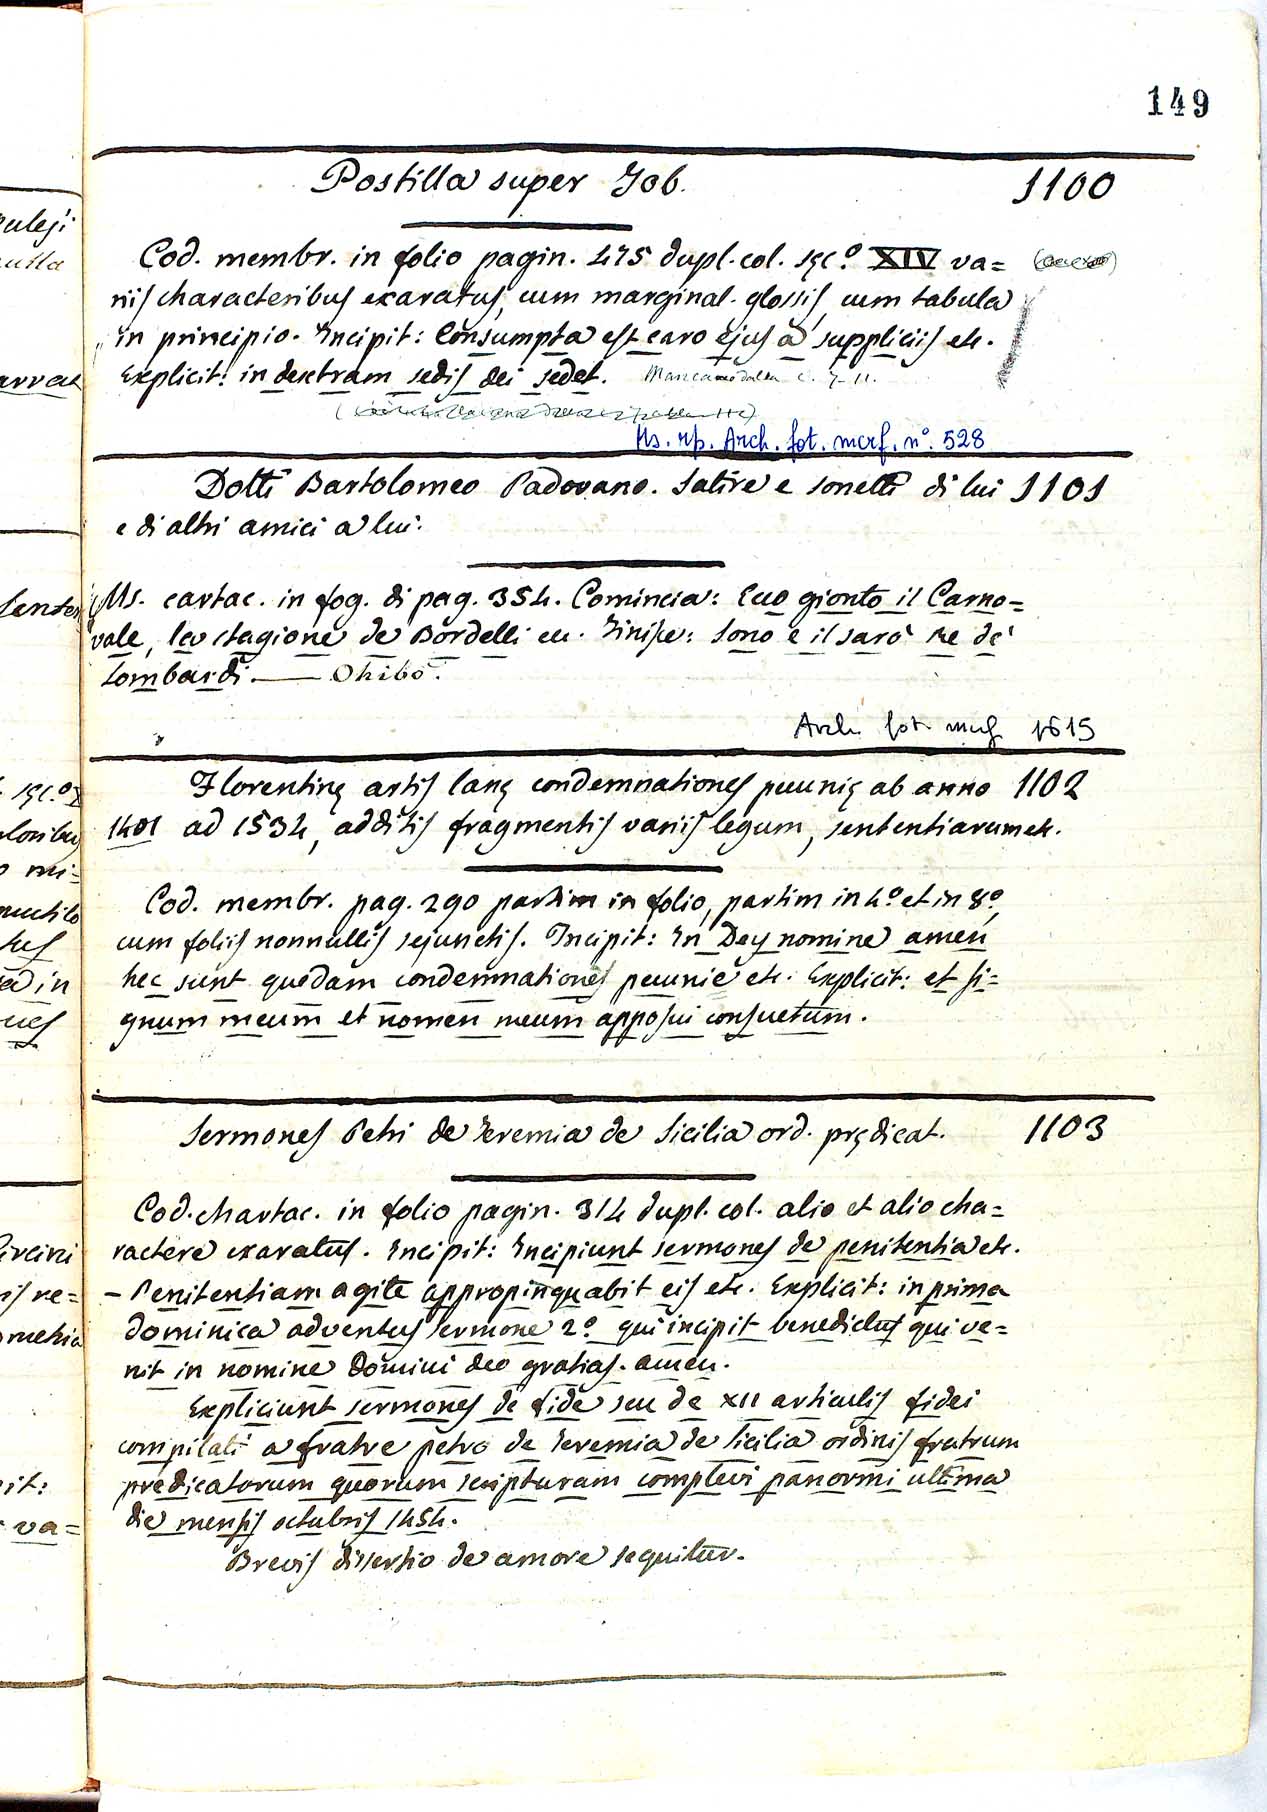 149
Postilla super Job. 1100
Cod. membr. in folio pagin. 475 dupl. col. sęc.º XIV va=
riis characteribus exaratus, cum marginal. glossis, cum tabula
in principio. Incipit: Consumpta est caro ejus a suppliciis etc.
Explicit: in dextram sedis dei sedet.
Ms. rip. Arch. fot. mcrf. nº. 528
Dotti Bartolomeo Padovano. Satire e sonetti di lui 1101
e di altri amici a lui.
Ms. cartac. in fog. di pag. 354. Comincia: Ecco gionto il Carno=
vale, la stagione de Bordelli ec. Finisce: Sono e il sarò Re de'
Lombardi. — Ohibò.
Arch. fot. mcrf 1615
Florentinę artis lanę condemnationes pecunię ab anno 1102
1401 ad 1534, additis fragmentis variis legum, sententiarum etc.
Cod. membr. pag. 290 partim in folio, partim in 4º et in 8º,
cum foliis nonnullis sejunctis. Incipit: In Dey nomine amen
hec sunt quedam condemnationes pecunie etc. Explicit: et si=
gnum meum et nomen meum apposui consuetum.
Sermones Petri de Jeremia de Sicilia ord. prędicat. 1103
Cod. chartac. in folio pagin. 314 dupl. col. alio et alio cha=
ractere exaratus. Incipit: Incipiunt sermones de penitentia etc.
– Penitentiam agite appropinquabit eis etc. Explicit: in prima
dominica adventus sermone 2º qui incipit benedictus qui ve=
nit in nomine Domini deo gratias. amen.
Expliciunt sermones de fide seu de XII articulis fidei
compilati a fratre petro de Jeremia de Sicilia ordinis fratrum
predicatorum quorum scripturam complevi panormi ultima
die mensis octubris 1454.
Brevis dissertio de amore sequitur.